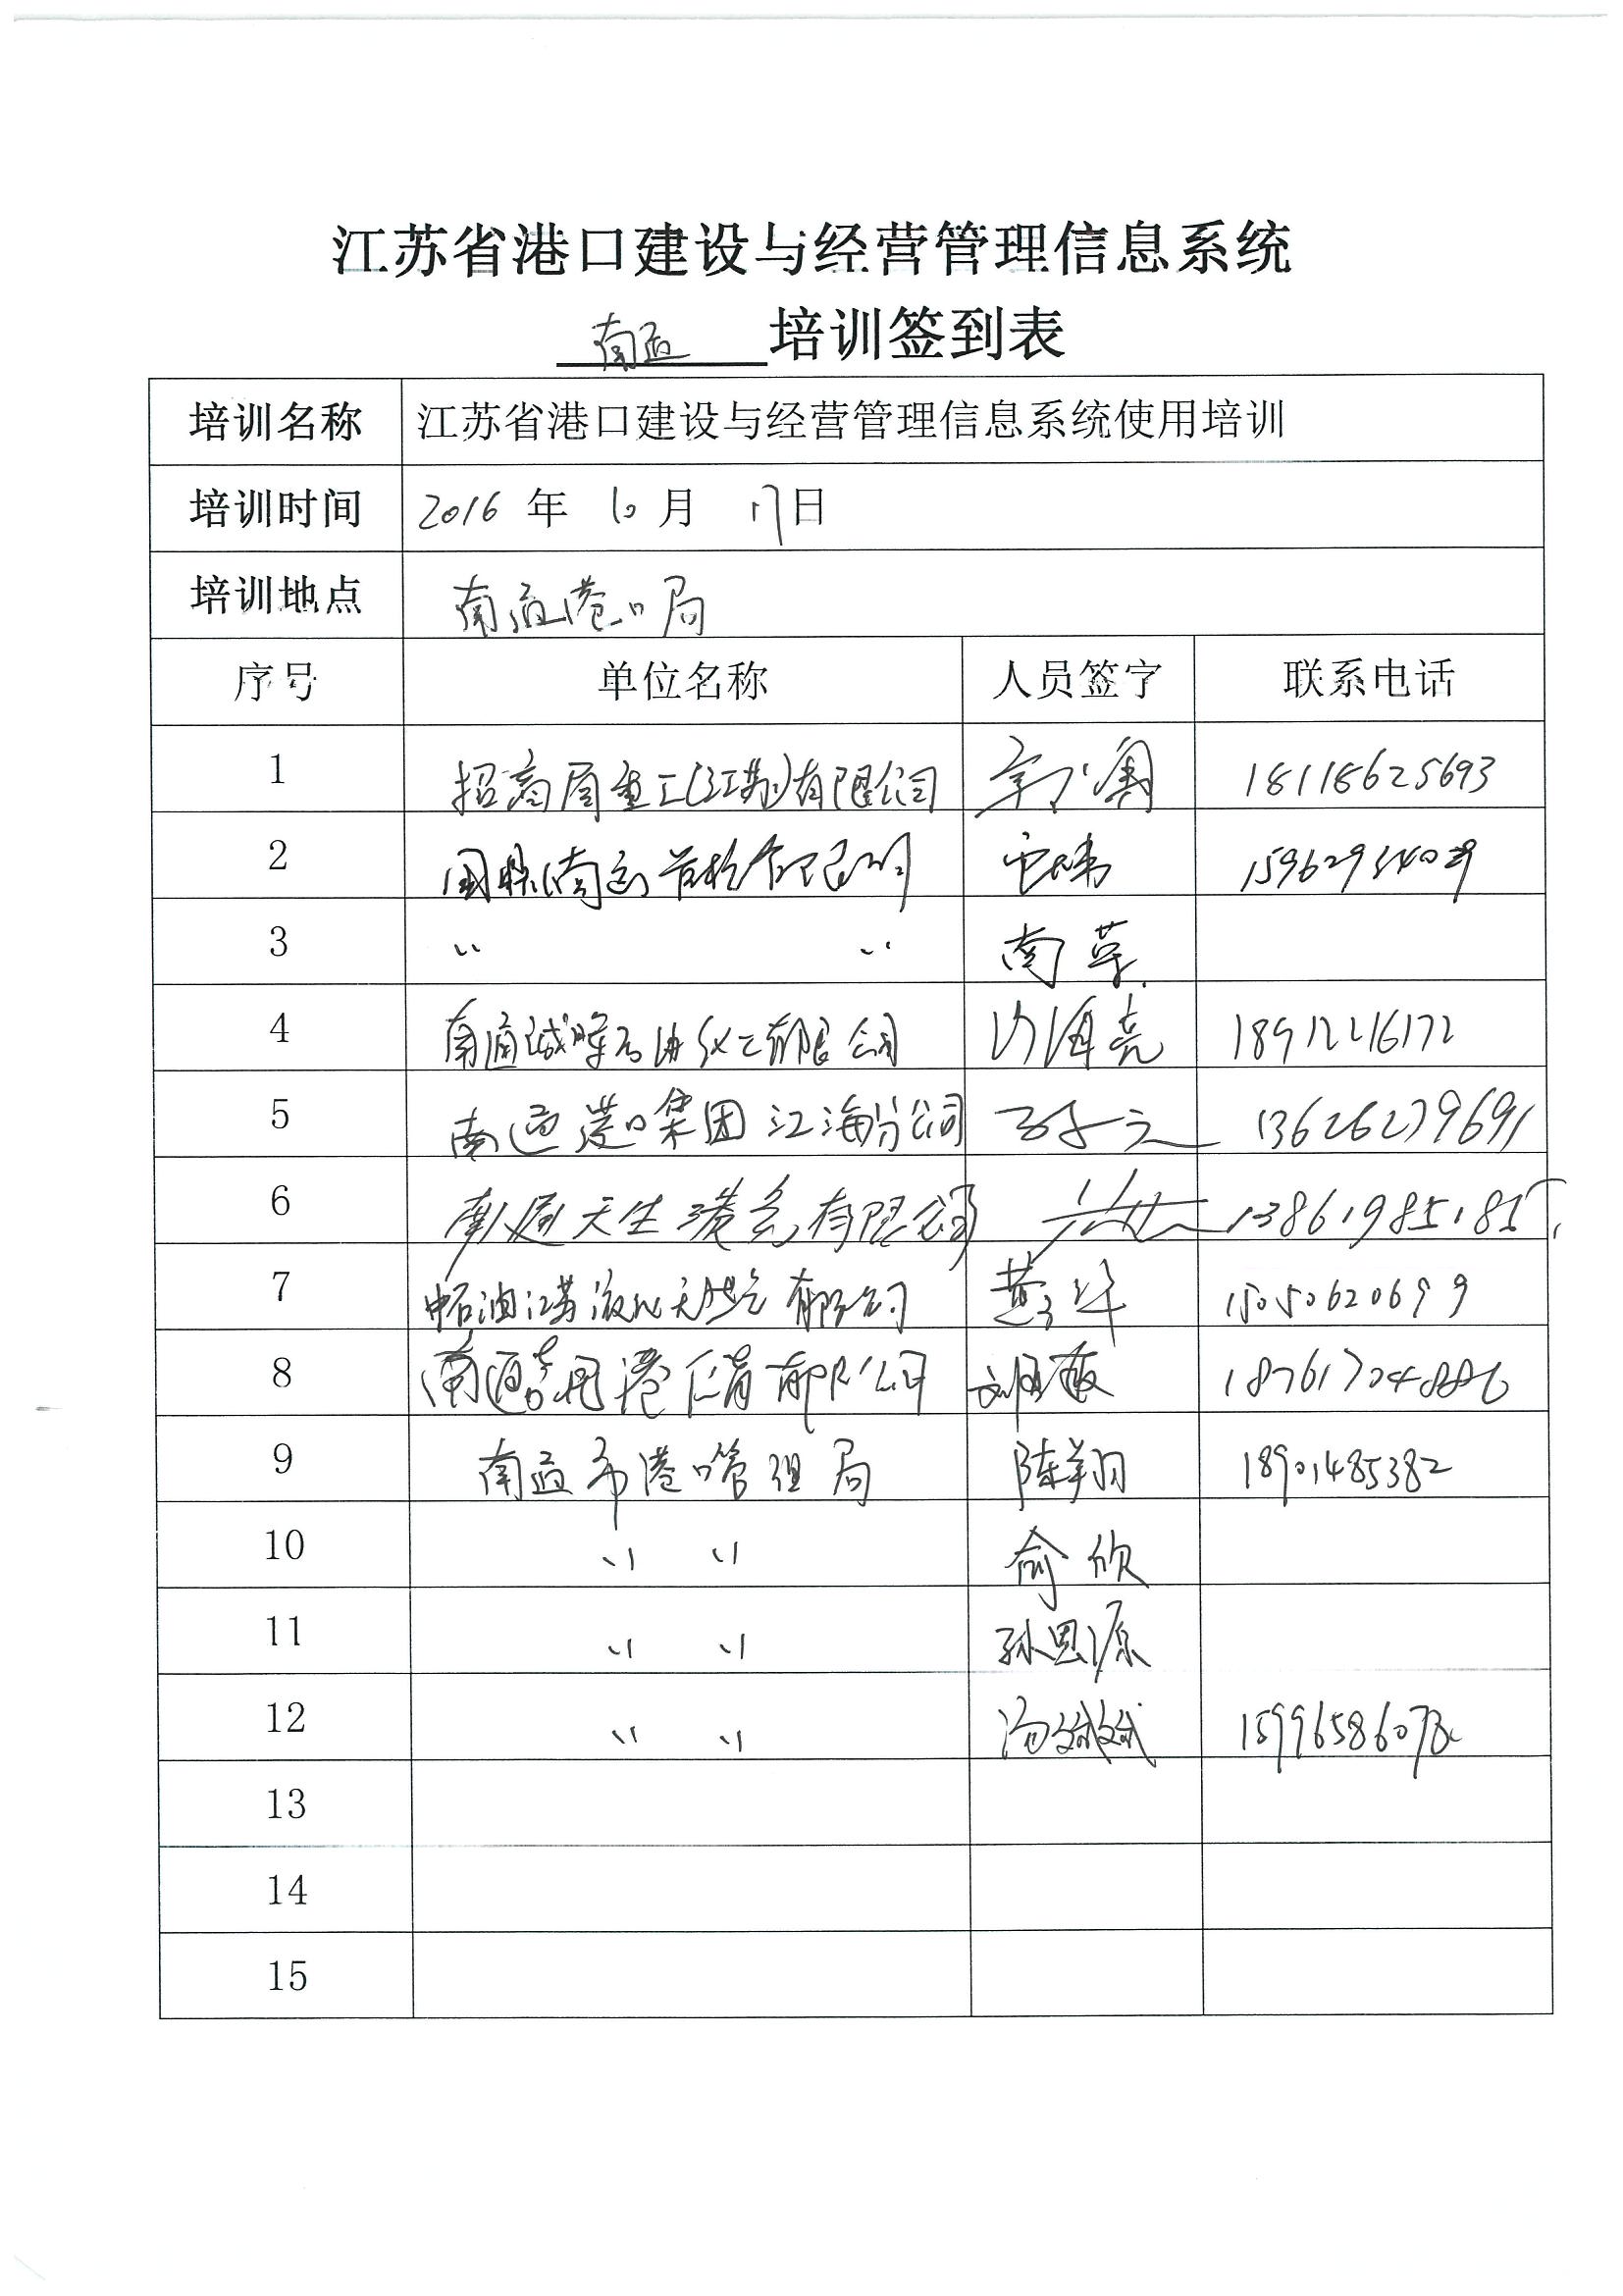 江苏省港口建设与经营管理信息系统
南通 培训签到表
培训名称 江苏省港口建设与经营管理信息系统使用培训
培训时间 2016 年 10 月 17日
培训地点 南通港口局
序号 单位名称 人员签字 联系电话
1 招商局重工(江苏)有限公司 18118625693
2
3 〃 〃 南苹
4 南通诚晖石油化工有限公司 海亮 18912216172
5 南通港口集团江海分公司 13626279691
6 南通天生港务有限公司 13861985185
7 中石油江苏液化天然气有限公司 黄华 15050620699
8 南通 港 有限公司 18761704886
9 南通市港口管理局 陈翔 18901485382
10 〃 〃 俞欣
11 〃 〃 孙思源
12 〃 〃 汤斌斌 15996586078
13
14
15